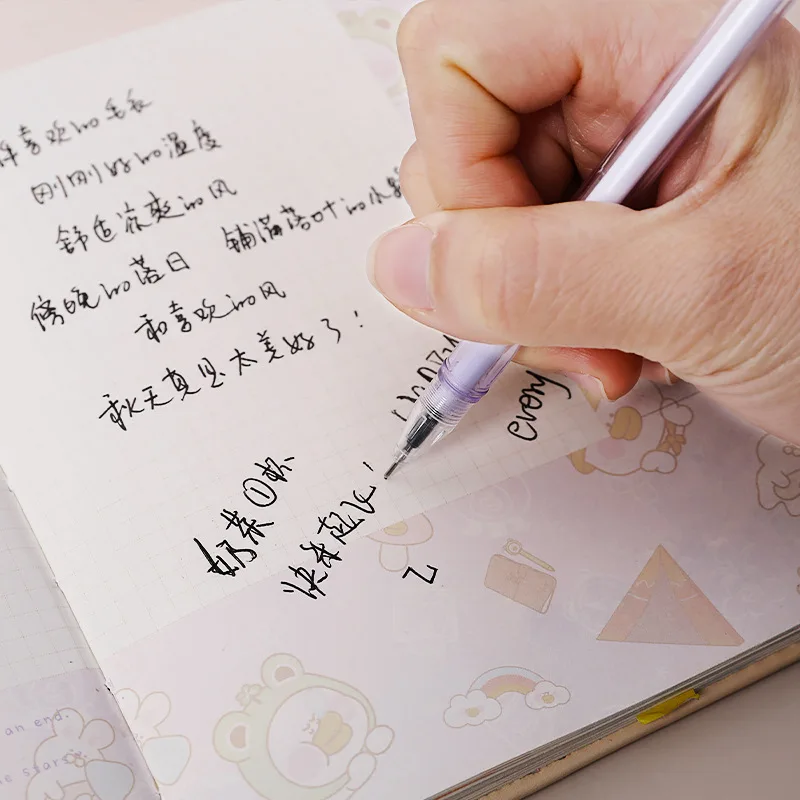 件喜欢的毛衣
刚刚好的温度
舒适凉爽的风 铺满落叶的小
傍晚的落日
和喜欢的风
秋天真是太美好了!
every
奶茶①杯
快乐起飞!
乙
an end.
e stars